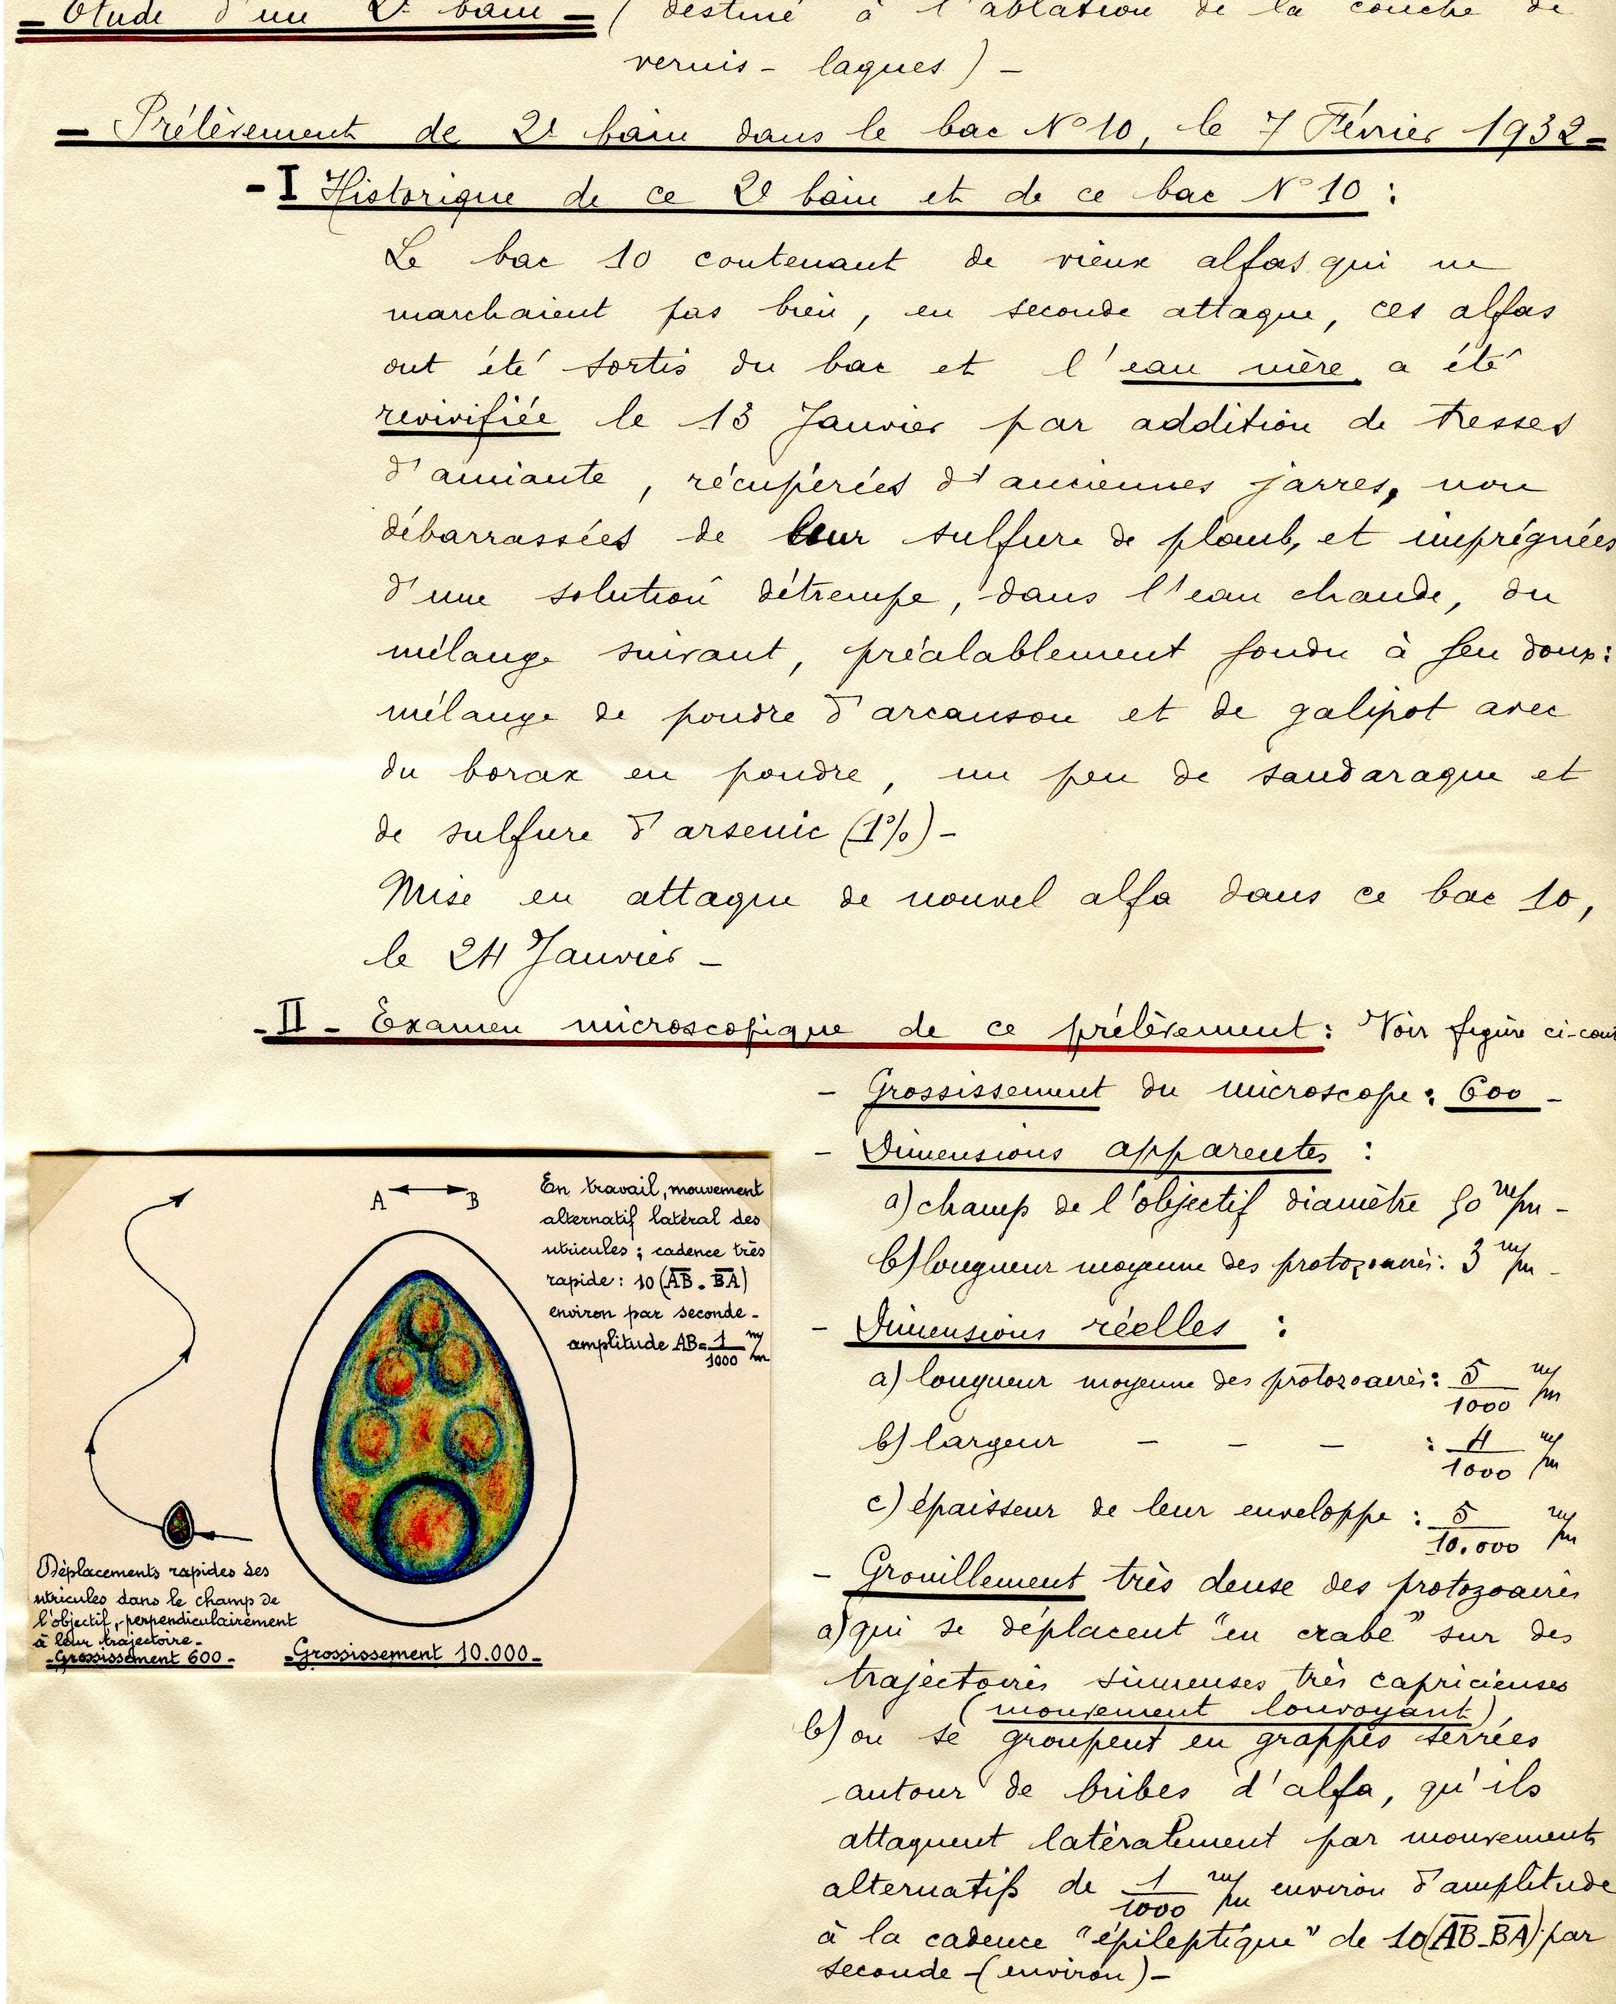 Etude d'un 2d bain — (destiné à l'ablation de la couche de
vernis - laques) —
— Prélèvement de 2d bain dans le bac N° 10, le 7 Février 1932 —
- I Historique de ce 2d bain et de ce bac N° 10 :
Le bac 10 contenant de vieux alfas qui ne
marchaient pas bien, en seconde attaque, ces alfas
ont été sortis du bac et l'eau mère a été
revivifiée le 13 Janvier par addition de tresses
d'amiante, récupérées d'anciennes jarres, non
débarrassées de leur sulfure de plomb, et imprégnées
d'une solution détrempe, dans l'eau chaude, du
mélange suivant, préalablement fondu à feu doux :
mélange de poudre d'arcanson et de galipot avec
du borax en poudre, un peu de sandaraque et
de sulfure d'arsenic (1%) -
Mise en attaque de nouvel alfa dans ce bac 10,
le 24 Janvier -
- II - Examen microscopique de ce prélèvement : Voir figure ci-cont
- Grossissement du microscope : 600 -
- Dimensions apparentes :
a) champ de l'objectif diamètre 50 m/m -
b) longueur moyenne des protozoaires : 3 m/m -
- Dimensions réelles :
a) longueur moyenne des protozoaires : 5/1000 m/m
b) largeur - - - : 4/1000 m/m
c) épaisseur de leur enveloppe : 5/10.000 m/m
- Grouillement très dense des protozoaires
a) qui se déplacent "en crabe" sur des
trajectoires sinueuses très capricieuses
(mouvement louvoyant),
b) ou se groupent en grappes serrées
autour de bribes d'alfa, qu'ils
attaquent latéralement par mouvements
alternatifs de 1/1000 m/m environ d'amplitude
à la cadence "épileptique" de 10(AB-BA) par
seconde - (environ) -
A B
En travail, mouvement
alternatif latéral des
utricules ; cadence très
rapide : 10 (AB - BA)
environ par seconde -
amplitude AB = 1/1000 m/m
Déplacements rapides des
utricules dans le champ de
l'objectif, perpendiculairement
à leur trajectoire -
- Grossissement 600 -
- Grossissement 10.000 -